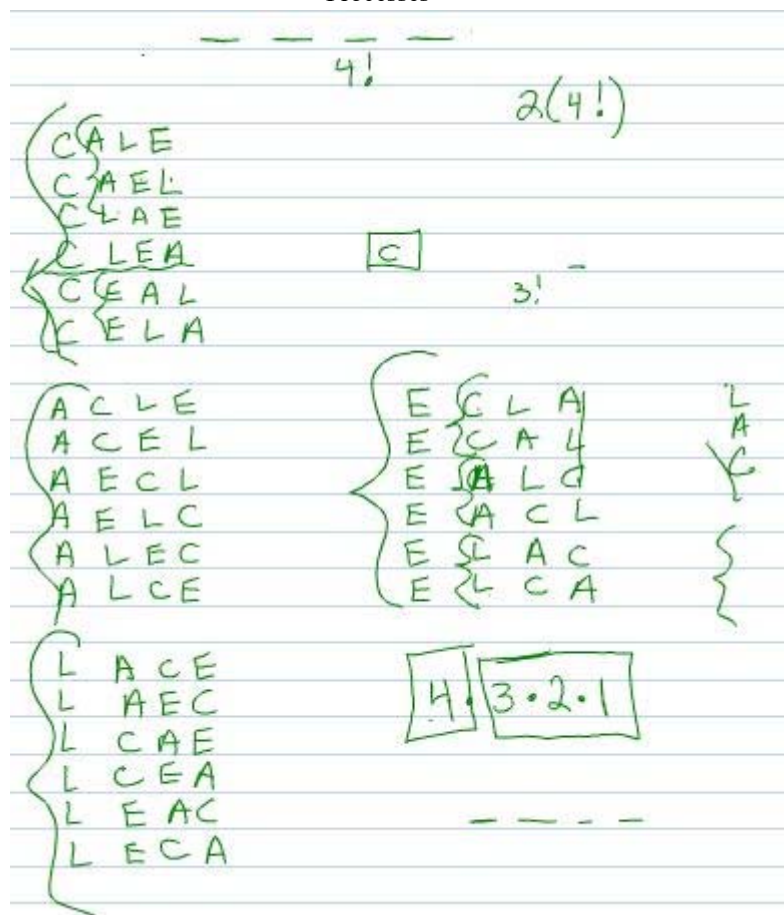 4!
2(4!)
C A L E
C A E L
C L A E
C L E A
C E A L
C E L A
C
3!
A C L E
A C E L
A E C L
A E L C
A L E C
A L C E
E C L A
E C A L
E A L C
E A C L
E L A C
E L C A
L
A
C
L A C E
L A E C
L C A E
L C E A
L E A C
L E C A
4 · 3 · 2 · 1